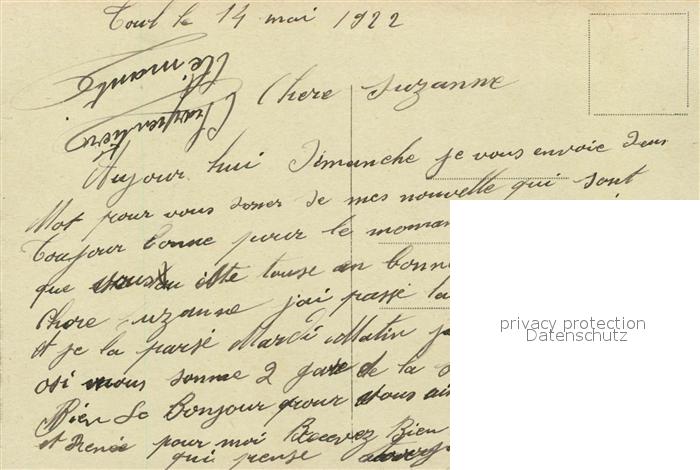 Toul le 14 mai 1922
Clémant
Charpentier
Chere Suzanne
Aujour hui Dimanche je vous envoie deus
Mot pour vous doner de mes nouvelle qui sont
Toujour bonne pour le moman
que vous ête touse en bonn
Chere Suzanne j'ai passé la
et je la passé Mardi Matin je
osi nous somme 2 gare de la
Bien Le Bonjour pour vous
et Renée pour moi Recevez Bien
qui pense
privacy protection
Datenschutz